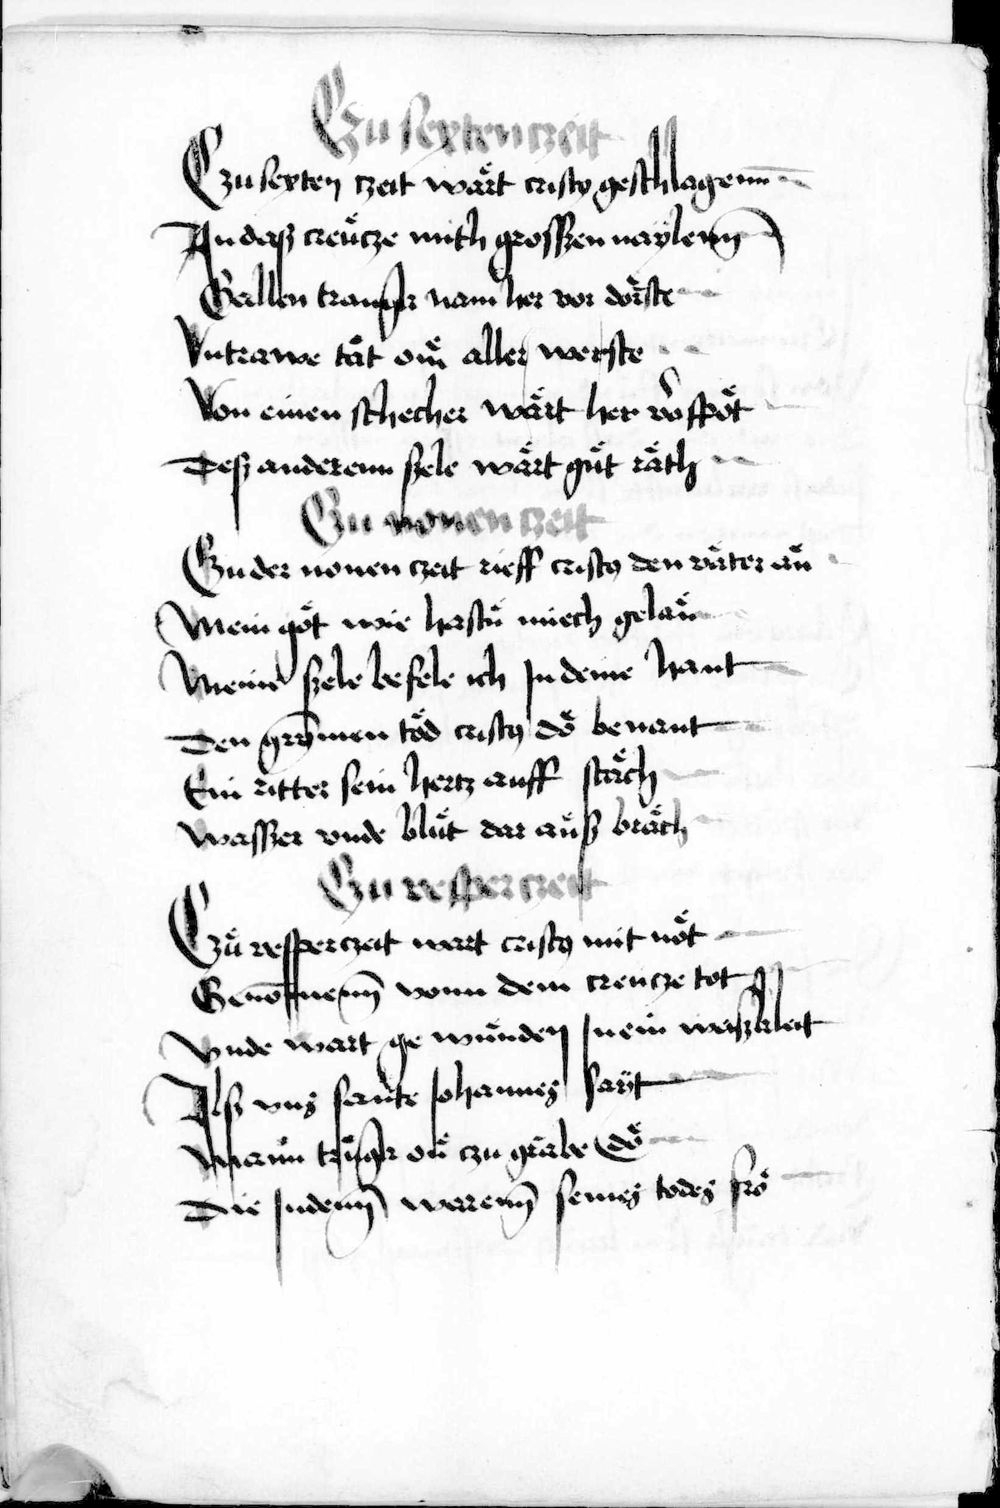 Czu sexten czeit
Czu sexten czeit wärt cristꝰ geschlagenn̄
An dasz creücze mith grosszen naÿlenn
Gallen tranck nam her vor dörste
Vntrawe tät om̄ aller werste
Von einen schecher wärt her vorspöt
Desz anderenn szele wärt güt räth
Czu nonen czeit
Czu der nonen czeit rieff cristꝰ den väter an
Mein göt wie hastü miech gelän
Meine szele befele ich Jn deine hant
Den grÿmen töd cristꝰ dö benant
Ein ritter sein hertz auff stäch
Wasszer vnde blüt dar aüsz bräch
Czu vesper czeit
Czü vesperczeit wart cristꝰ mit nöt
Genōmenn vonn dem creucze tot
Vnde wart ge wünden Jn ein weiszkleit
Alsz vns sante Johannes saÿt
Man trügk on czu grabe dö
Die Judenn warenn seines todes frö